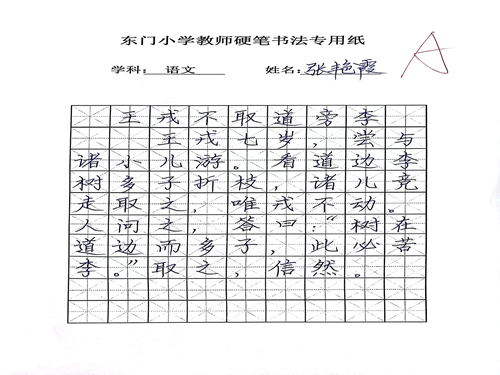 东门小学教师硬笔书法专用纸
A
学科： 语文 姓名：张艳霞
王戎不取道旁李
王戎七岁，尝与
诸小儿游。看道边李
树多子折枝，诸儿竞
走取之，唯戎不动。
人问之，答曰：“树在
道边而多子，此必苦
李。”取之，信然。